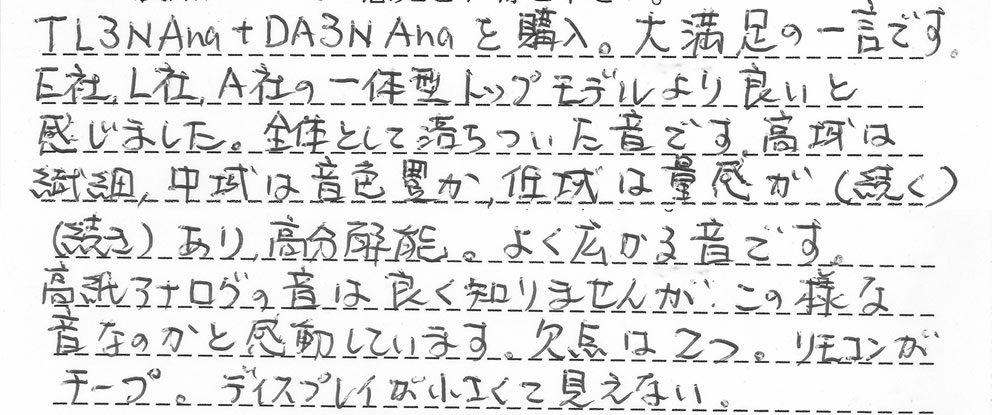 TL3N Ana + DA3N Ana を購入。大満足の一言です。
E社、L社、A社の一体型トップモデルより良いと
感じました。全体として落ちついた音です。高域は
繊細、中域は音色豊か、低域は量感が（続く）
（続き）あり、高分解能。よく広がる音です。
高級アナログの音は良く知りませんが、この様な
音なのかと感動しています。欠点は2つ。リモコンが
チープ。ディスプレイが小さくて見えない。